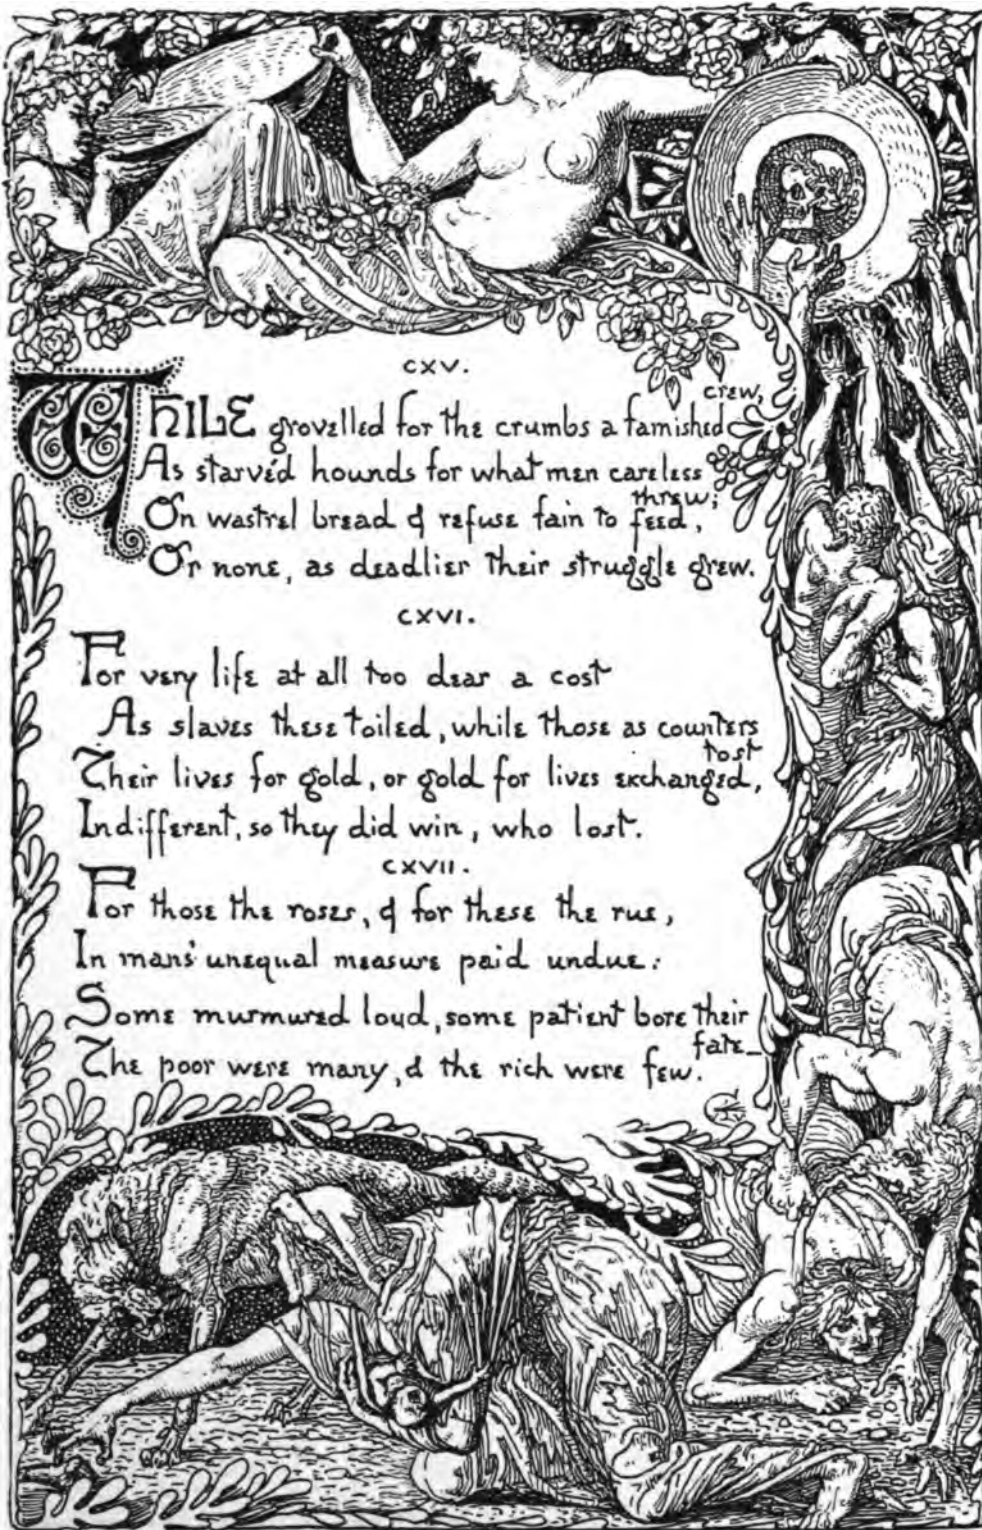 CXV.
WHILE grovelled for the crumbs a famished crew,
As starvéd hounds for what men careless threw;
On wastrel bread & refuse fain to feed,
Or none, as deadlier their struggle grew.
CXVI.
For very life at all too dear a cost
As slaves these toiled, while those as counters tost
Their lives for gold, or gold for lives exchanged,
Indifferent, so they did win, who lost.
CXVII.
For those the roses, & for these the rue,
In man's unequal measure paid undue:
Some murmured loud, some patient bore their fate—
The poor were many, & the rich were few.